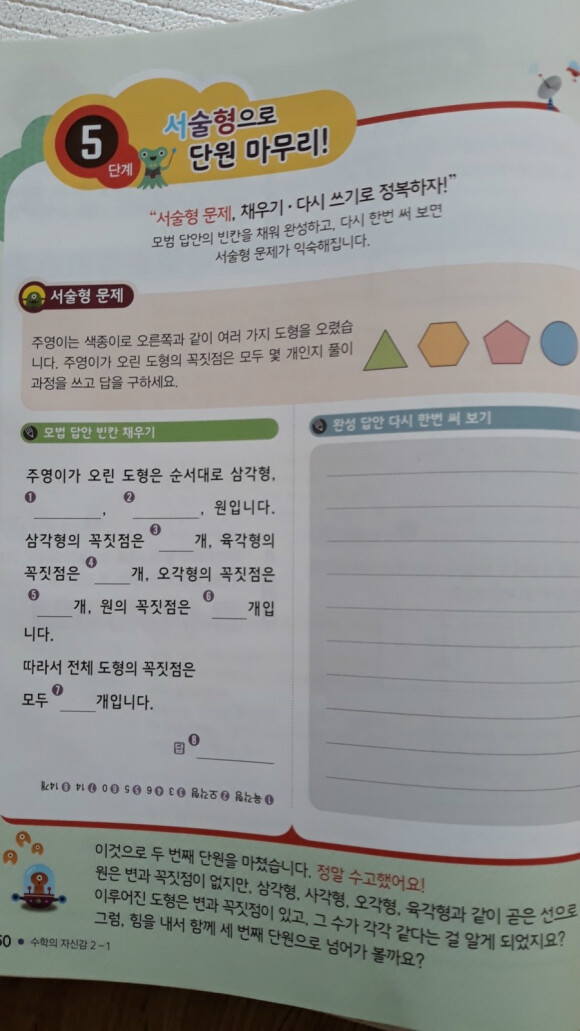 5
단계
서술형으로
단원 마무리!
“서술형 문제, 채우기·다시 쓰기로 정복하자!”
모범 답안의 빈칸을 채워 완성하고, 다시 한번 써 보면
서술형 문제가 익숙해집니다.
서술형 문제
주영이는 색종이로 오른쪽과 같이 여러 가지 도형을 오렸습
니다. 주영이가 오린 도형의 꼭짓점은 모두 몇 개인지 풀이
과정을 쓰고 답을 구하세요.
모범 답안 빈칸 채우기
주영이가 오린 도형은 순서대로 삼각형,
❶ , ❷ , 원입니다.
삼각형의 꼭짓점은 ❸ 개, 육각형의
꼭짓점은 ❹ 개, 오각형의 꼭짓점은
❺ 개, 원의 꼭짓점은 ❻ 개입
니다.
따라서 전체 도형의 꼭짓점은
모두 ❼ 개입니다.
답 ❽
❶ 육각형 ❷ 오각형 ❸ 3 ❹ 6 ❺ 5 ❻ 0 ❼ 14 ❽ 14개
완성 답안 다시 한번 써 보기
이것으로 두 번째 단원을 마쳤습니다. 정말 수고했어요!
원은 변과 꼭짓점이 없지만, 삼각형, 사각형, 오각형, 육각형과 같이 곧은 선으로
이루어진 도형은 변과 꼭짓점이 있고, 그 수가 각각 같다는 걸 알게 되었지요?
그럼, 힘을 내서 함께 세 번째 단원으로 넘어가 볼까요?
수학의 자신감 2-1